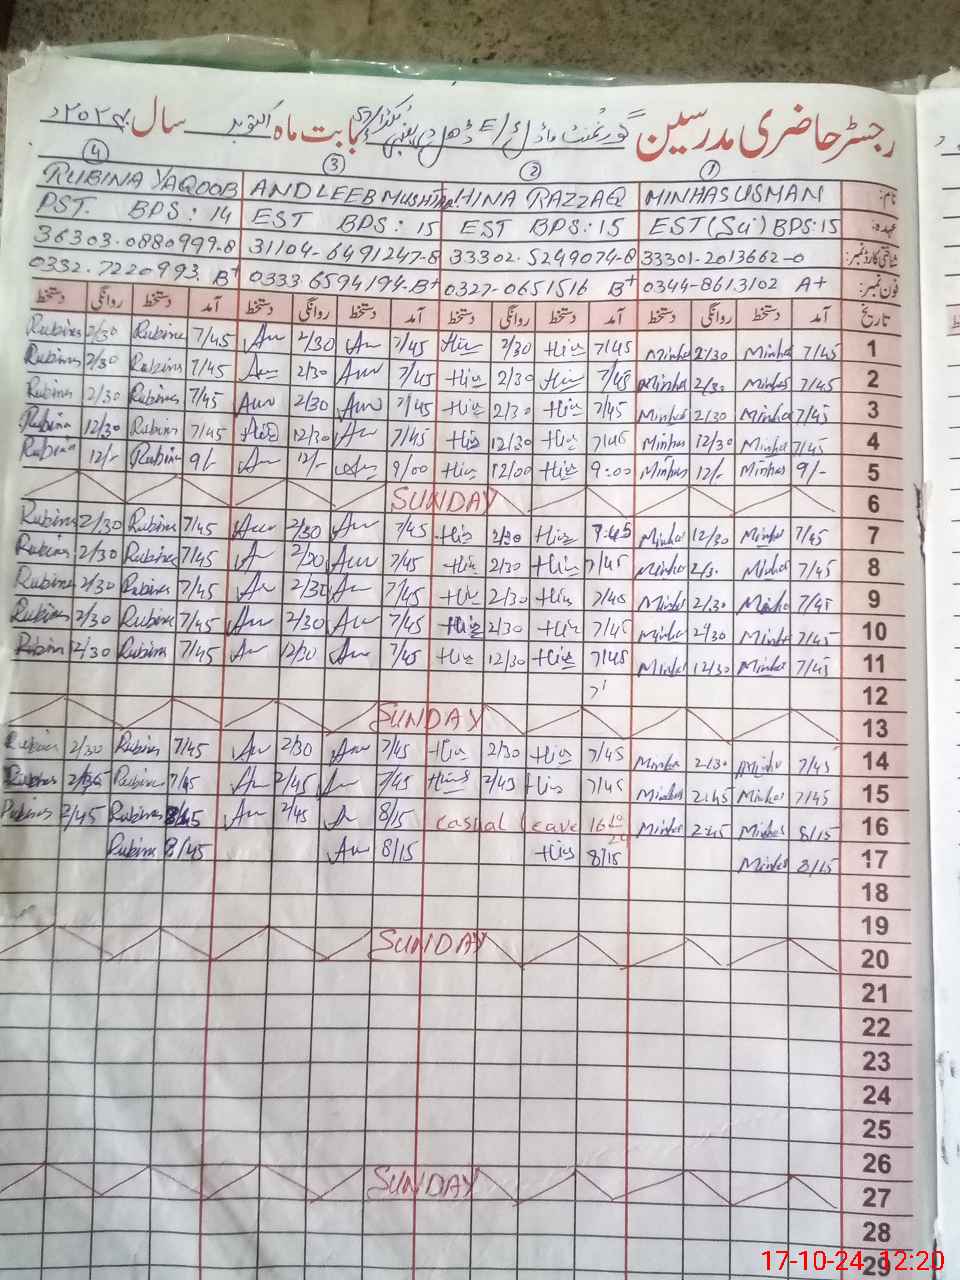 رجسٹر حاضری مدرسین گورنمنٹ ماڈل بابت ماہ اکتوبر سال ۲۰۲۴ء
④ ③ ② ①
RUBINA YAQOOB ANDLEEB MUSHTAQ HINA RAZZAQ MINHAS USMAN نام:
PST. BPS: 14 EST BPS: 15 EST BPS: 15 EST (Sci) BPS: 15 عہدہ:
36303-0880999-8 31104-6491247-8 33302-5249074-8 33301-2013662-0 شناختی کارڈ نمبر:
0332-7220993 B+ 0333-6594194-B+ 0327-0651516 B+ 0344-8613102 A+ فون نمبر:
دستخط روانگی دستخط آمد دستخط روانگی دستخط آمد دستخط روانگی دستخط آمد دستخط روانگی دستخط آمد تاریخ
Rubina 2/30 Rubina 7/45 An 2/30 An 7/45 Hina 2/30 Hina 7/45 Minhas 2/30 Minhas 7/45 1
Rubina 2/30 Rubina 7/45 An 2/30 An 7/45 Hina 2/30 Hina 7/45 Minhas 2/30 Minhas 7/45 2
Rubina 2/30 Rubina 7/45 An 2/30 An 7/45 Hina 2/30 Hina 7/45 Minhas 2/30 Minhas 7/45 3
Rubina 12/30 Rubina 7/45 12/30 An 7/45 Hina 12/30 Hina 7/45 Minhas 12/30 Minhas 7/45 4
Rubina 12/- Rubina 9/- An 12/- An 9/00 Hina 12/00 Hina 9:00 Minhas 12/- Minhas 9/- 5
SUNDAY 6
Rubina 2/30 Rubina 7/45 An 2/30 An 7/45 Hina 2/30 Hina 7:45 Minhas 12/30 Minhas 7/45 7
Rubina 2/30 Rubina 7/45 An 2/30 An 7/45 Hina 2/30 Hina 7/45 Minhas 2/3 Minhas 7/45 8
Rubina 2/30 Rubina 7/45 An 2/30 An 7/45 Hina 2/30 Hina 7/45 Minhas 2/30 Minhas 7/45 9
Rubina 2/30 Rubina 7/45 An 2/30 An 7/45 Hina 2/30 Hina 7/45 Minhas 2/30 Minhas 7/45 10
Rubina 12/30 Rubina 7/45 An 12/30 An 7/45 Hina 12/30 Hina 7/45 Minhas 12/30 Minhas 7/45 11
12
SUNDAY 13
Rubina 2/30 Rubina 7/45 An 2/30 An 7/45 Hina 2/30 Hina 7/45 Minhas 2/30 Minhas 7/45 14
Rubina Rubina 7/45 An 2/45 An 7/45 Hina 2/45 Hina 7/45 Minhas 2:45 Minhas 7/45 15
Rubina 2/45 Rubina An 2/45 An 8/15 casual leave Minhas 2:45 Minhas 8/15 16
Rubina 8/45 An 8/15 Hina 8/15 Minhas 8/15 17
18
19
SUNDAY 20
21
22
23
24
25
26
SUNDAY 27
28
29
17-10-24 12:20